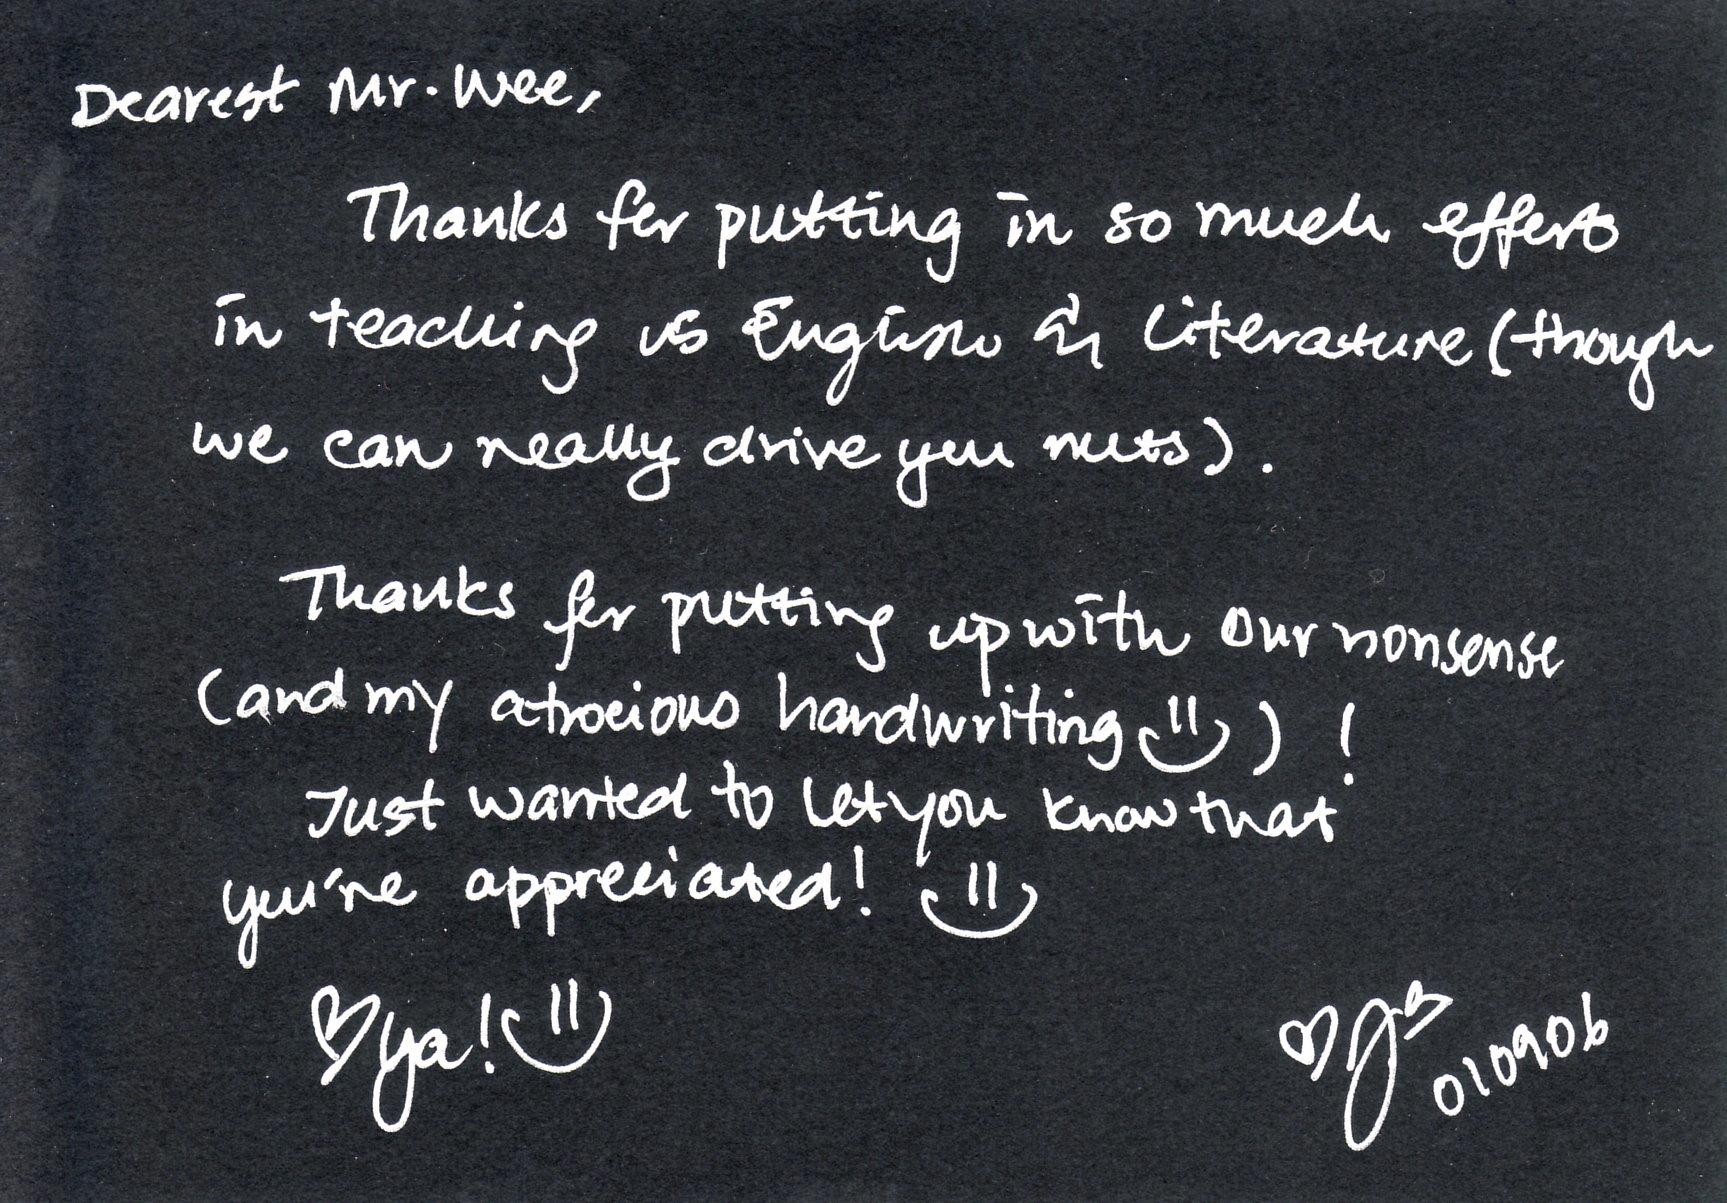 Dearest Mr. Wee,
Thanks for putting in so much effort
in teaching us English & Literature (though
we can really drive you nuts).
Thanks for putting up with our nonsense
(and my atrocious handwriting =) ) !
Just wanted to let you know that
you're appreciated! =)
♡ ya! =)
♡
010906